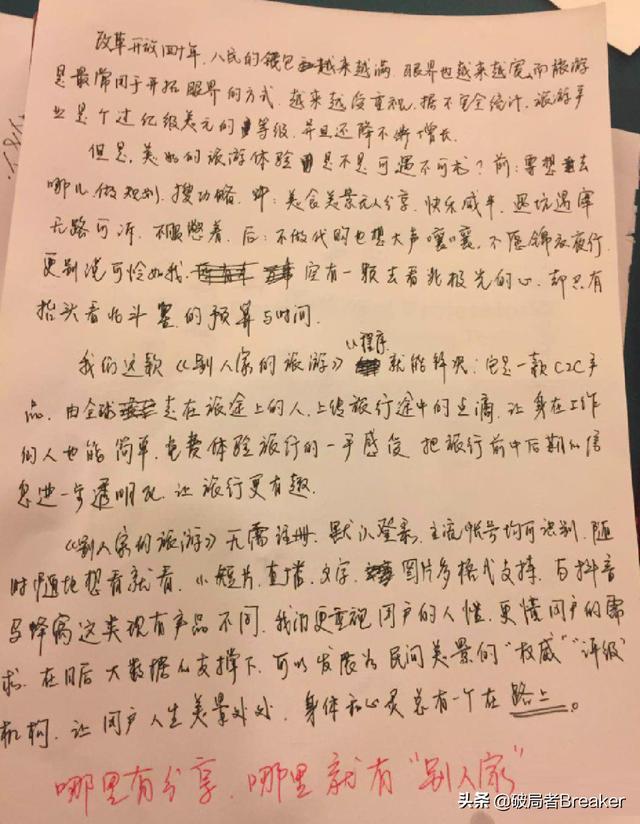 改革开放四十年,人民的钱包越来越满,眼界也越来越宽,而旅游
是最常用于开拓眼界的方式,越来越受重视,据不完全统计,旅游产
业是个过亿级美元的等级,并且还降不断增长。
但是,美好的旅游体验是不是可遇不可求?前:要想去
哪儿,做规划,搜功略,中:美食美景无人分享,快乐减半,遇坑遇宰
无路可诉,不服憋着,后:不做代购也想大声嚷嚷,不愿锦衣夜行,
更别说可怜如我,空有一颗去看北极光的心,却只有
抬头看北斗星的预算与时间。
我们这款《别人家的旅游》小程序就能解决:它是一款C2C产
品,由全球走在旅途上的人,上传旅行途中的点滴,让身在工作
的人也能简单,免费体验旅行的一手感受,把旅行前中后期的信
息进一步透明化,让旅行更有趣。
《别人家的旅游》无需注册,默认登录,主流帐号均可识别,随
时随地想看就看,小短片,直播,文字,图片多格式支持,与抖音
马蜂窝这类现有产品不同,我们更重视用户的人性,更懂用户的需
求,在日后大数据的支撑下,可以发展为民间美景的“权威”“评级”
机构,让用户人生美景处处,身体和心灵总有一个在路上。
哪里有分享,哪里就有“别人家”
头条 @破局者Breaker